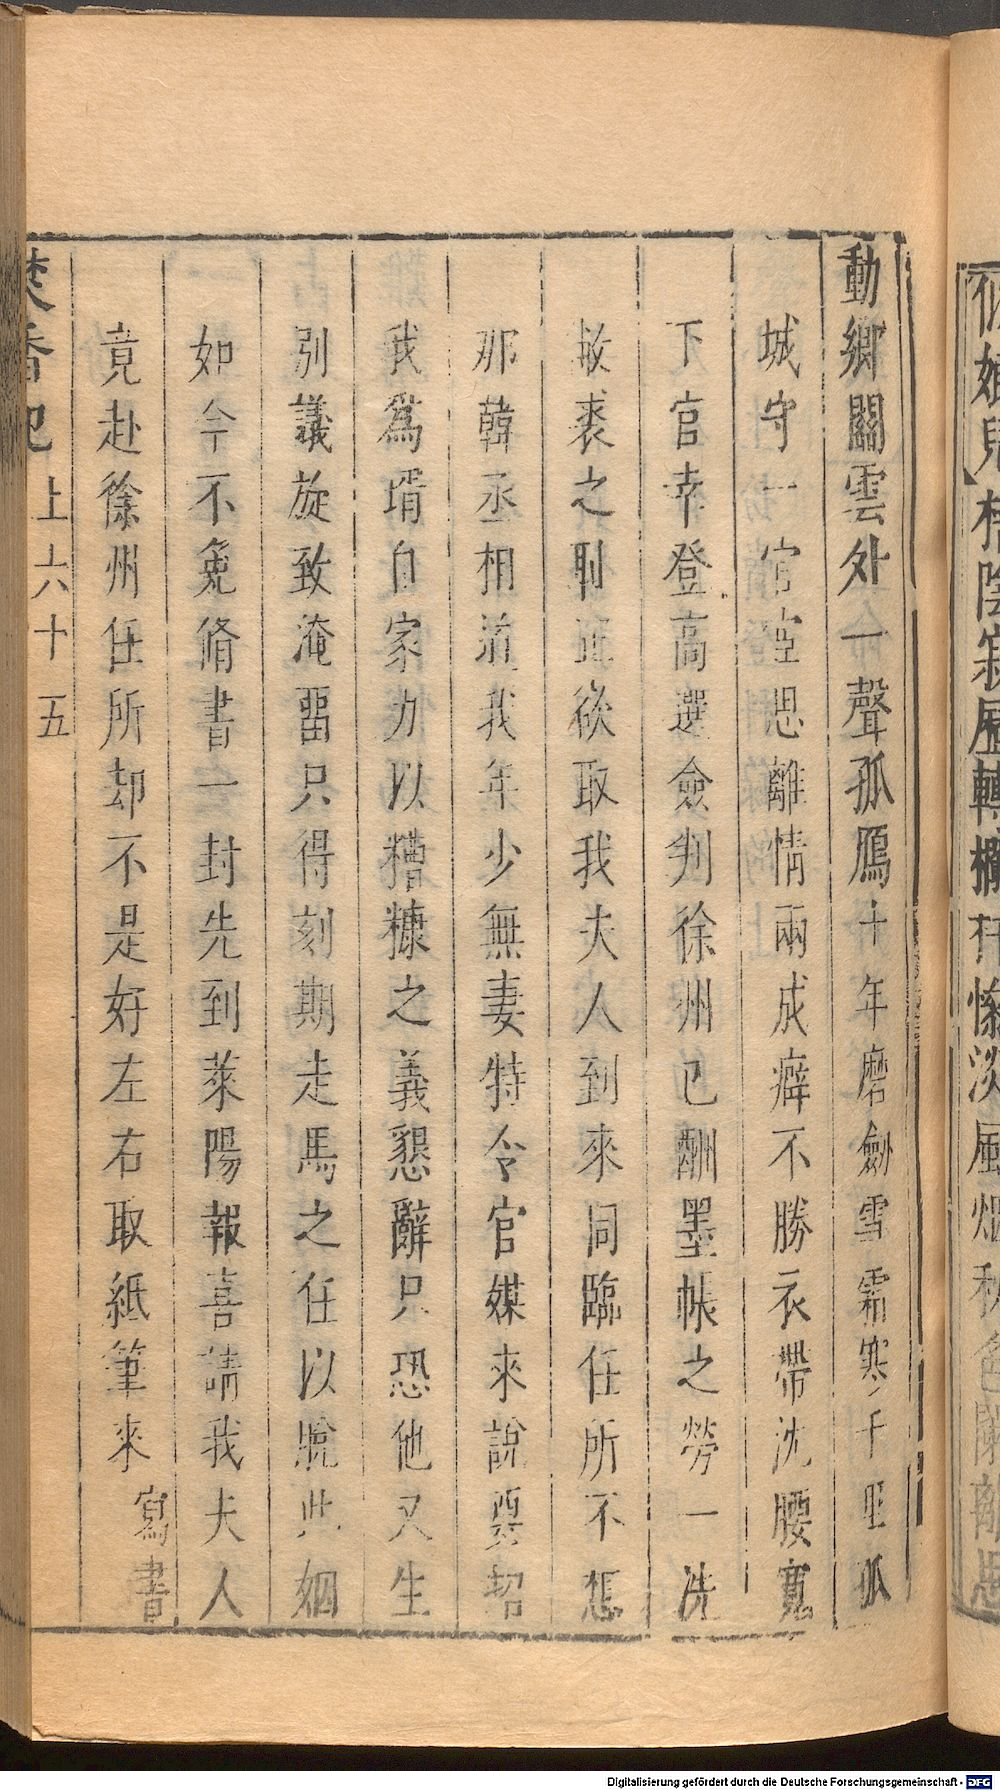 娘兒】桂陰寂歷轉搠慘淡風烟秋色闌離思
動鄉關雲外一聲孤鴈十年磨劍雪霜寒千里孤
城守一官空思離情兩成癖不勝衣帶沈腰寬
下官幸登高選僉判徐州已酬墨帳之勞一洗
敝裘之耻正欲取我夫人到來同臨任所不想
那韓丞相道我年少無妻特令官媒來說要招
我爲壻自家力以糟糠之義懇辭只恐他又生
别議旋致淹畱只得刻期走馬之任以脫此姻
如今不免脩書一封先到萊陽報喜請我夫人
竟赴徐州任所却不是好左右取紙筆來 寫書
焚香記 上 六十五
Digitalisierung gefördert durch die Deutsche Forschungsgemeinschaft - DFG